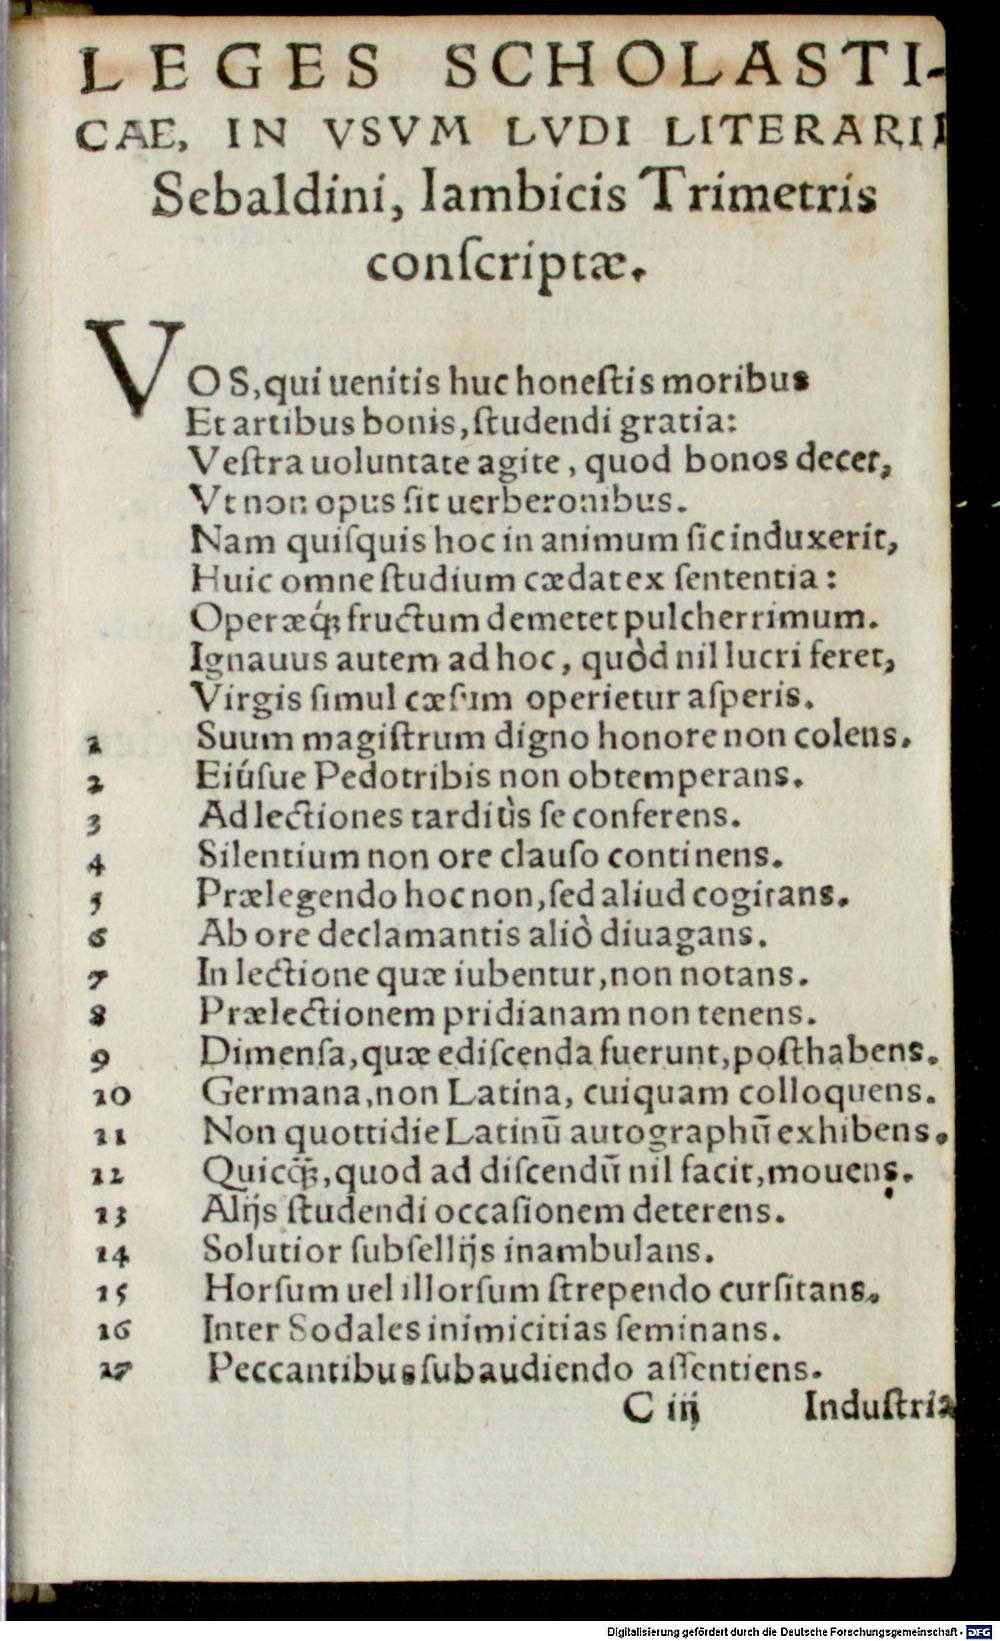 LEGES SCHOLASTI-
CAE, IN VSVM LVDI LITERARII
Sebaldini, Iambicis Trimetris
conſcriptæ.
VOS, qui uenitis huc honeſtis moribus
Et artibus bonis, ſtudendi gratia:
Veſtra uoluntate agite, quod bonos decet,
Vt non opus ſit uerberonibus.
Nam quiſquis hoc in animum ſic induxerit,
Huic omne ſtudium cædat ex ſententia:
Operæq́ꝫ fructum demetet pulcherrimum.
Ignauus autem ad hoc, quòd nil lucri feret,
Virgis ſimul cæſum operietur aſperis.
1 Suum magiſtrum digno honore non colens.
2 Eiúſue Pedotribis non obtemperans.
3 Ad lectiones tardiùs ſe conferens.
4 Silentium non ore clauſo continens.
5 Prælegendo hoc non, ſed aliud cogitans.
6 Ab ore declamantis aliò diuagans.
7 In lectione quæ iubentur, non notans.
8 Prælectionem pridianam non tenens.
9 Dimenſa, quæ ediſcenda fuerunt, poſthabens.
10 Germana, non Latina, cuiquam colloquens.
11 Non quottidie Latinū autographū exhibens.
12 Quicq̃ꝫ, quod ad diſcendū nil facit, mouens.
13 Alijs ſtudendi occaſionem deterens.
14 Solutior ſubſellijs inambulans.
15 Horſum uel illorſum ſtrependo curſitans.
16 Inter Sodales inimicitias ſeminans.
17 Peccantibus ſubaudiendo aſſentiens.
C iij Induſtria
Digitalisierung gefördert durch die Deutsche Forschungsgemeinschaft - DFG